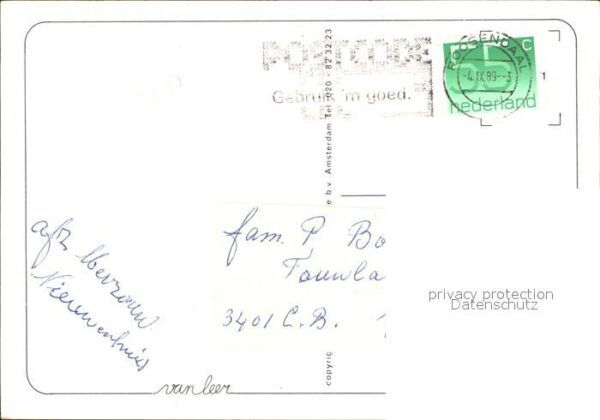 POSTCODE
Gebruik 'm goed.
ROOSENDAAL
-4.IX.89--3
1
55 c
nederland
copyrig
e b.v. Amsterdam Tel. 020 - 82 32 23
afz Mevrouw
Nieuwenhuis
fam. P Bo
3401 C.B.
privacy protection
Datenschutz
van leer